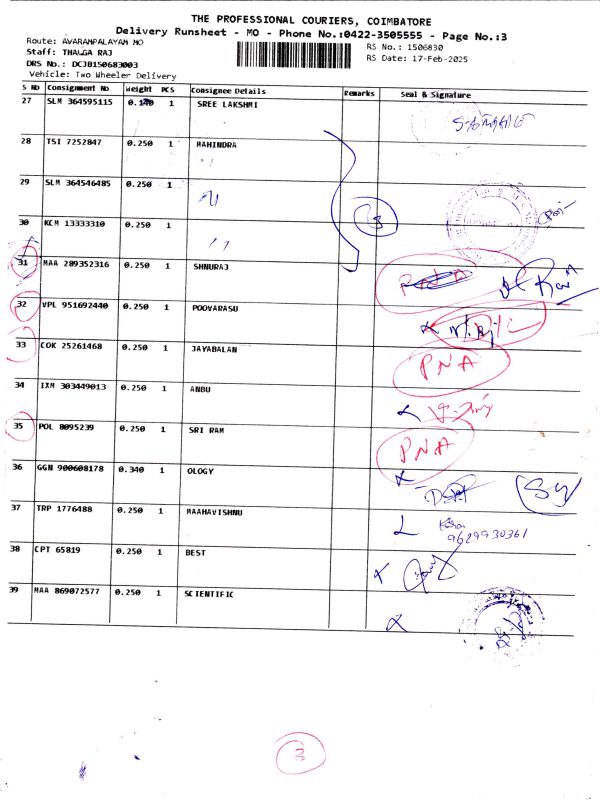 THE PROFESSIONAL COURIERS, COIMBATORE
Delivery Runsheet - MO - Phone No.:0422-3505555 - Page No.:3
Route: AVARAMPALAYAM MO
RS No.: 1506830
Staff: THALGA RAJ
RS Date: 17-Feb-2025
DRS No.: DCJB150683003
Vehicle: Two Wheeler Delivery
S No Consignment No Weight PCS Consignee Details Remarks Seal & Signature
27 SLM 364595115 0.140 1 SREE LAKSHMI
28 TSI 7252847 0.250 1 MAHINDRA
29 SLM 364546485 0.250 1
30 KCM 13333310 0.250 1
31 MAA 289352316 0.250 1 SHNURAJ PNA
32 VPL 951692440 0.250 1 POOVARASU
33 COK 25261468 0.250 1 JAYABALAN PNA
34 IXM 303449013 0.250 1 ANBU
35 POL 8095239 0.250 1 SRI RAM PNA
36 GGN 900608178 0.340 1 OLOGY
37 TRP 1776488 0.250 1 MAAHAVISHNU
9629930361
38 CPT 65819 0.250 1 BEST
39 MAA 869072577 0.250 1 SCIENTIFIC
3